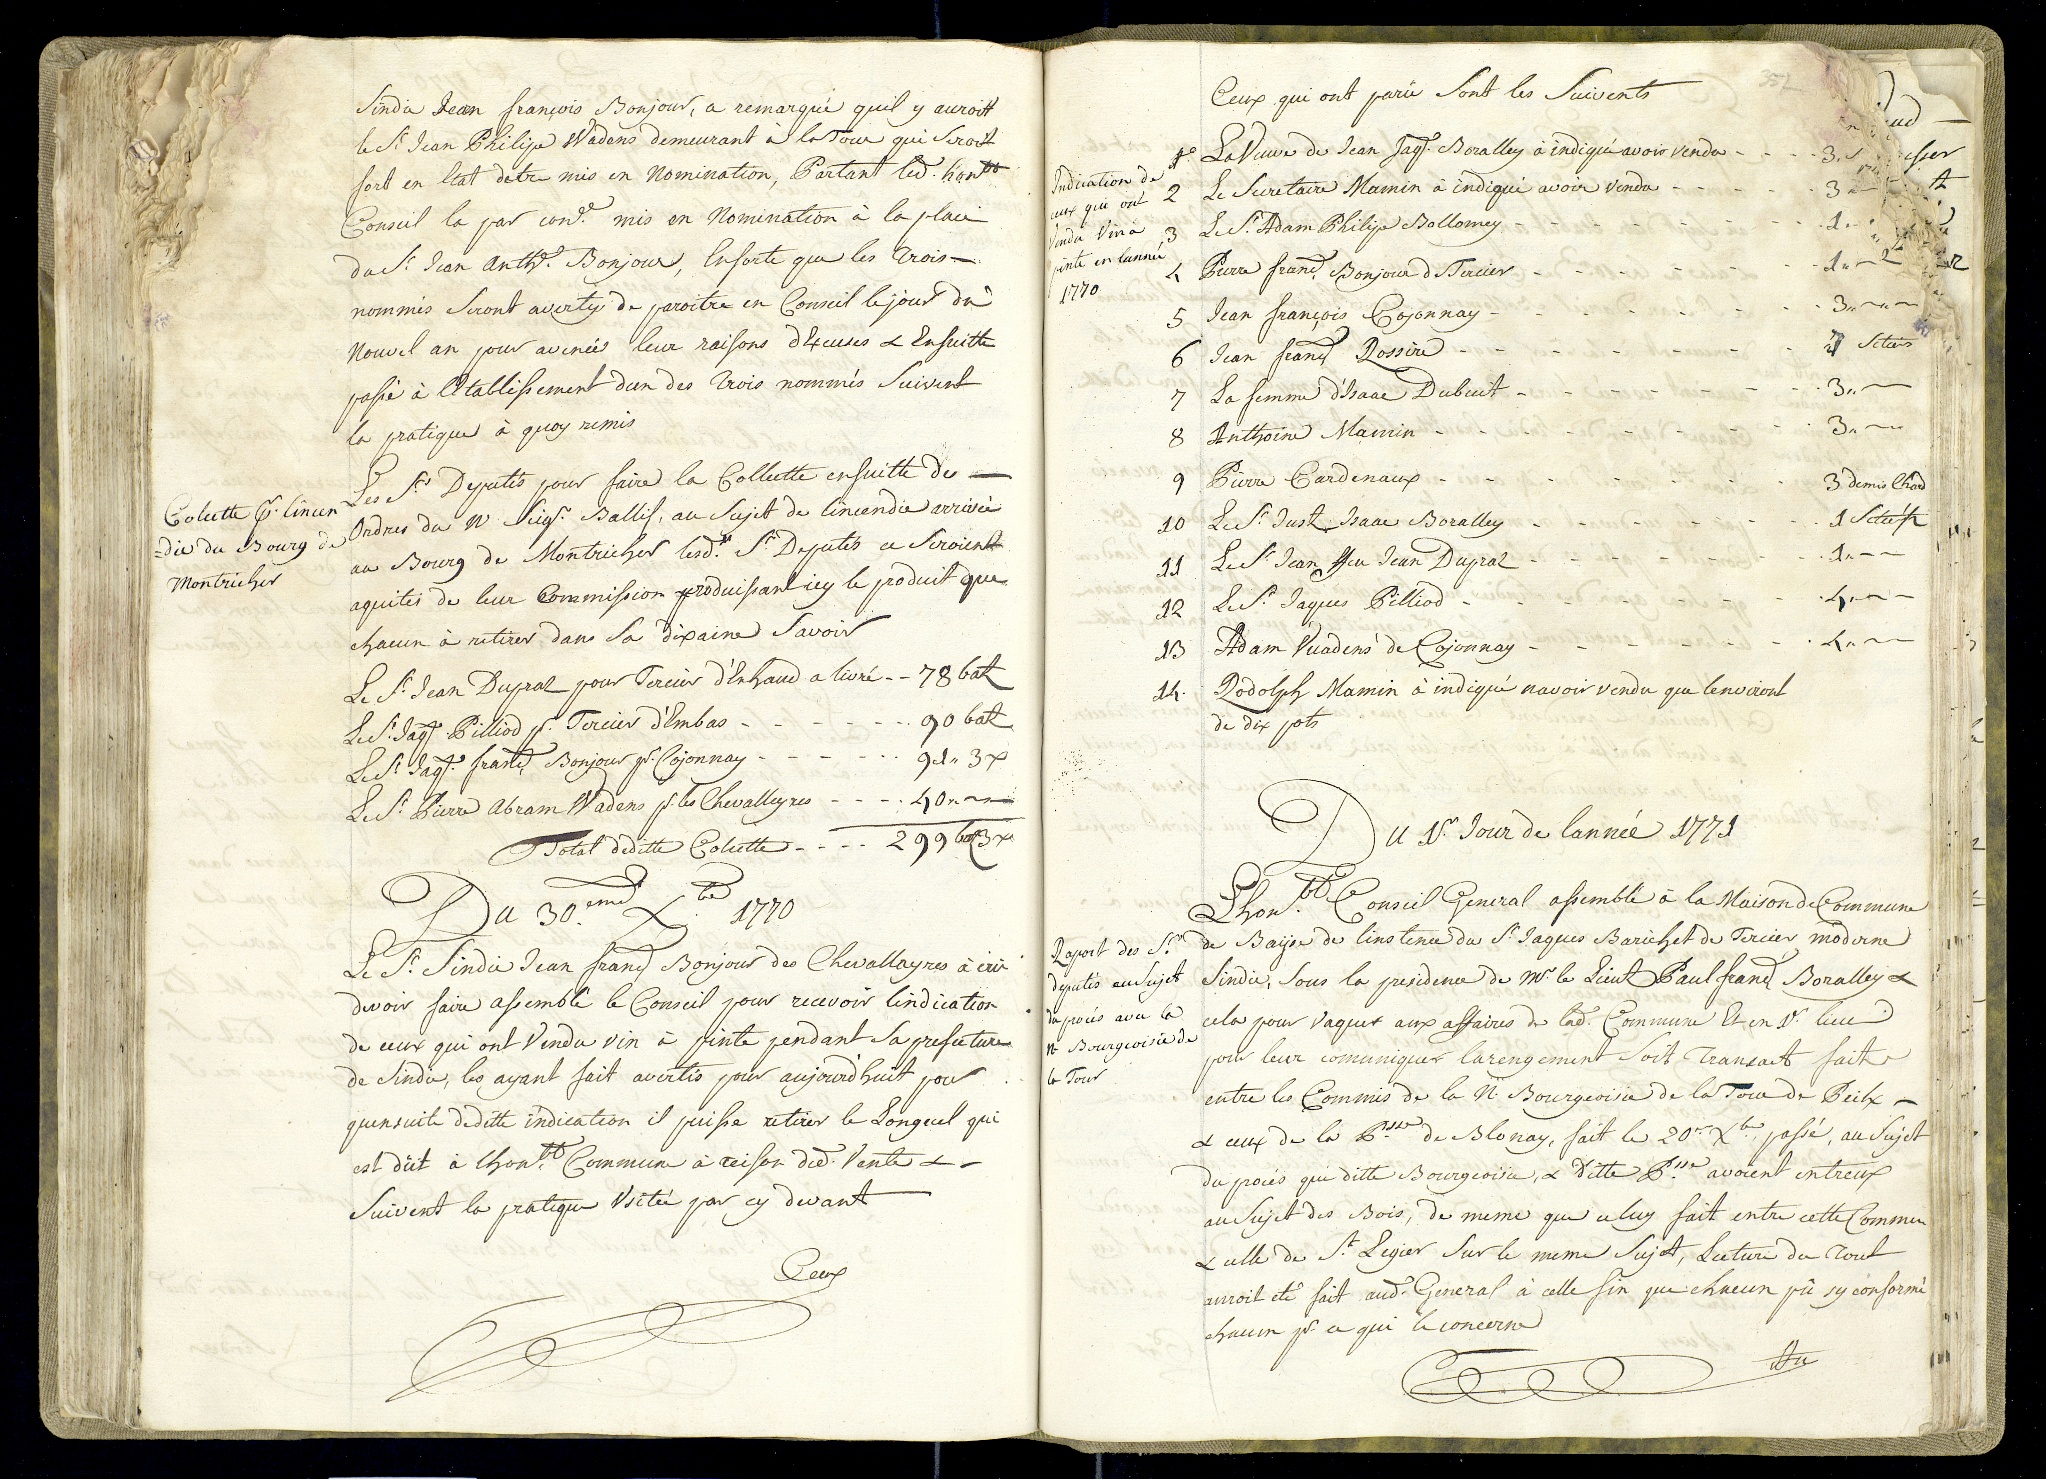 Sindiq Jean françois Bonjour, a remarqué quil y auroitt
le Sr. Jean Philipe Wadens demeurant à la Tour qui Seroit
fort en Etat detre mis en Nomination, Partant led. honble
Conseil la par cond.e mis en Nomination à la place
du Sr. Jean Anthe. Bonjour, Ensorte que les Trois
nommés Seront avertis de paroitre en Conseil le jour du
Nouvel an pour avencés leur raisons dExcuses & Ensuitte
passé à l'Etablissement dun des Trois nommés Suivent
la pratique à quoy remis
Colectte pr. lincen
-die du Bourg de
Montricher
Les Srs Deputés pour faire la Collectte ensuitte des
Ordres du N. Seigr. Ballif, au Sujet de lincendie arrivée
au Bourg de Montricher lesd.ts Srs Deputés ce Seroientt
aquités de leur Commission produissant icy le produit que
chacun à retirer dans Sa dixaine Savoir
Le Sr. Jean Dupraz pour Tercier d'Enhaud a livré - - 78 batz
Le Sr. Jaqs. Pilliod pr. Tercier d'Embas - - - - - - 90 batz
Le Sr. Jaqs. franç Bonjour pr. Cojonnay - - - - - - 91 " 3 x
Le Sr. Pierre Abram Wadens pr. les Chevalleyres - - - - 40 " —
Total deditte Colectte - - - - 299 bat 3 x
Du 30.eme Xbre 1770
Le Sr. Sindiq Jean franç Bonjour des Chevalleyres à crû
devoir faire assemblé le Conseil pour recevoir lindication
de ceux qui ont Vendu vin à pinte pendant Sa prefecture
de Sindiq, les ayant fait avertis pour aujourd'huit pour
quensuite deditte indication il puisse retirer le Longuel qui
est dût à lhonble. Commune à reison dud. Vente & -
Suivent la pratique Usitée par cy devant
Ceux
357
Ceux qui ont parû Sont les Suivents
Indication de
ceux qui ont
Vendu Vin à
pinte en lannée
1770
1e La Veuve de Jean Jaqs. Boralley à indiqué avoir vendu - - - - 3
2 Le Secretaire Mamin à indiqué avoir vendu - - - - - - 3 "
3 Le Sr. Adam Philipe Bollomey - - - - - - - - 1
4 Pierre franç Bonjour d Tercier - - - - - - - 1 "
5 Jean françois Cojonnay - - - - - - - - 3 " — " —
6 Jean franç Rossire - - - - - - - - Setiers
7 La femme d'Isaac Dubuit - - - - - - - - 3 " —
8 Anthoine Mamin - - - - - - - - 3 " —
9 Pierre Cardenaux - - - - - - - - 3 demis Chard
10 Le Sr. Just Isaac Boralley - - - - - - - 1 Setier
11 Le Sr. Jean ffeu Jean Dupraz - - - - - - - 1 " —
12 Le Sr. Jaques Pilliod - - - - - - - - 4 " —
13 Adam Vuadens de Cojonnay - - - - - - - 4 " —
14. Rodolph Mamin à indiqué navoir vendu que lenviront
de dix pots
Du 1er. Jour de lannée 1771
Raport des Srs.
deputés au Sujet
du procés avec la
Ne Bourgeoisie de
la Tour
Lhonble. Conseil General assemblé à la Maison de Commune
de Baye de linstence du Sr. Jaques Barichet de Tercier moderne
Sindiq, Sous la presidence de Mr. le Lieut Paul franç Boralley &
cela pour vaquer aux affaires de lad. Commune Et en 1er. lieu
pour leur comuniquer larengement Soit Transact fait
entre les Commis de la Ne Bourgeoisie de la Tour de Peilx
& ceux de la Psse de Blonay, fait le 20me. Xbre passé, au Sujet
du procés que ditte Bourgeoisie, & ditte Psse avoient entreux
au Sujet des Bois, de meme que celuy fait entre cette Commu
& celle de St. Legier Sur le meme Sujet, Lecture du tout
auroit eté fait aud. General à celle fin que chacun pû sy conformé
chacun pr. ce qui le concerne
Au